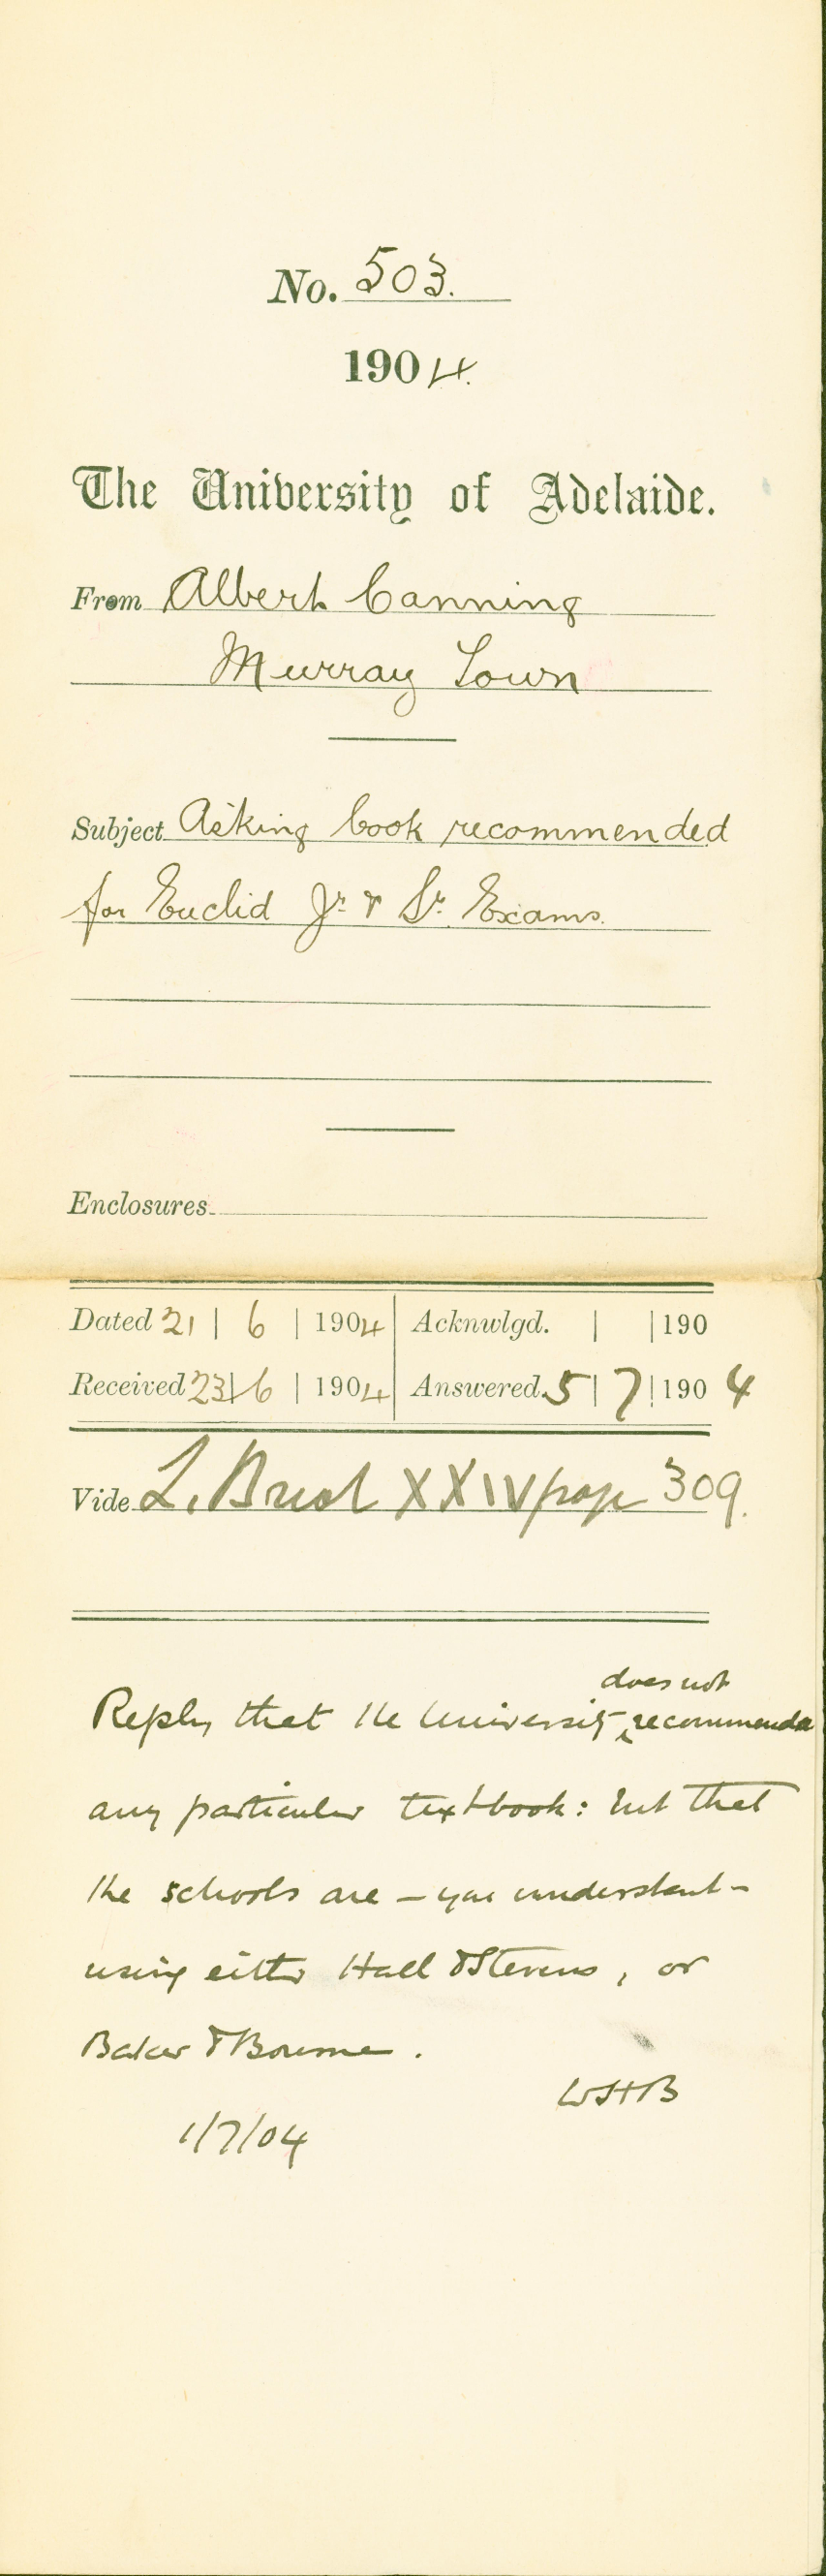 No. 503.
1904.
The University of Adelaide.
From Albert Canning
Murray Town
Subject Asking book recommended
for Euclid Jr. & Sr. Exams.
Enclosures
Dated 21 | 6 | 1904 Acknwlgd. | | 190
Received 23 | 6 | 1904 Answered 5 | 7 | 1904
Vide L. Book XXIV page 309.
does not
Reply that the University recommends
any particular textbook: but that
the schools are – you understand –
using either Hall & Stevens, or
Baker & Bourne.
WHB
1/7/04